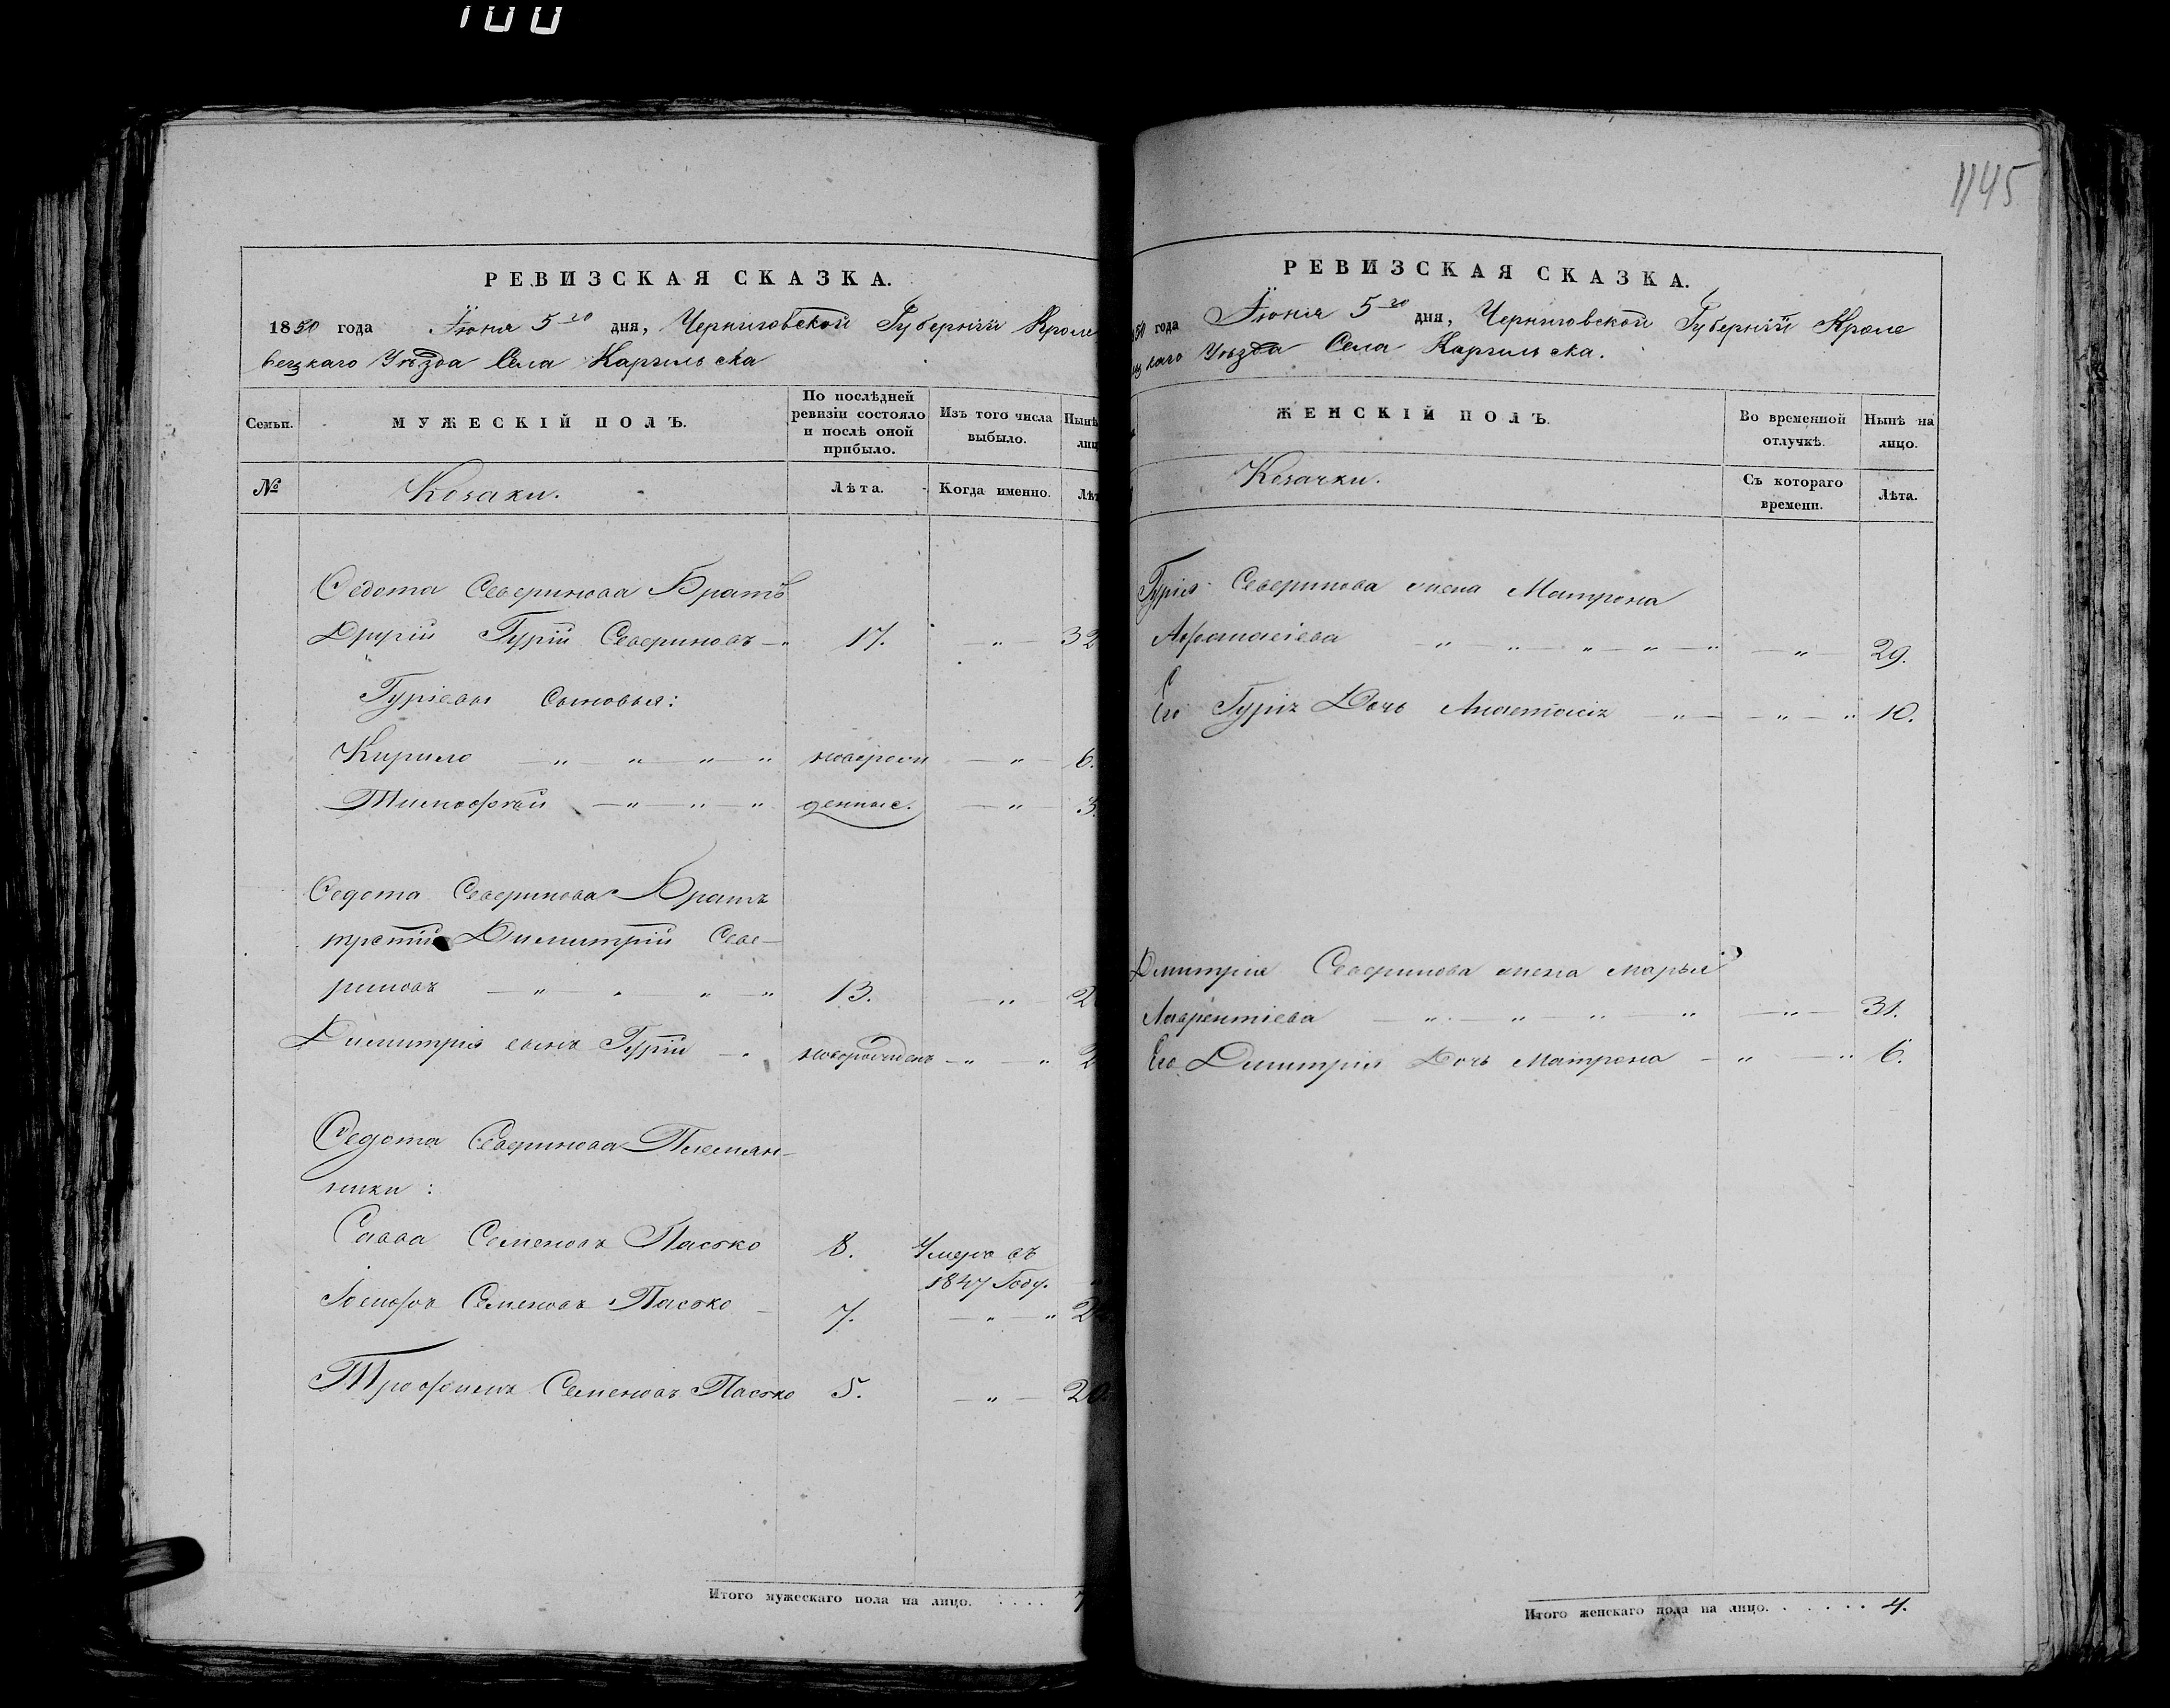 100
1145
РЕВИЗСКАЯ СКАЗКА.
1850 года Іюня 5го дня, Черниговской Губерніи Кроле
вецкаго Уѣзда Села Каригльска
Семьи. МУЖЕСКІЙ ПОЛЪ. По послѣдней ревизіи состояло и послѣ оной прибыло. Изъ того числа выбыло. Нынѣ
№ Козаки. Лѣта. Когда именно. Лѣт
Федота Северинова Братъ
Другій Гурій Севериновъ — 17. — " — 32
Гуріевы Сыновья:
Кирило — " — " — " — " новорож — " — 6.
Тимофѣй — " — " — " денные. — " 3.
Федота Северинова Братъ
третій Димитрій Севе-
риновъ — " — " — " — " 13. — " — 2
Димитрія сынъ Гурій — " новорожденъ — " — " 2
Федота Северинова Племян-
ники:
Савва Семеновъ Пасько 8. Умеръ въ
1847 Году. "
Іосифъ Семеновъ Пасько — 7. — " — " 2
Трофимъ Семеновъ Пасько 5. — " — 20
Итого мужескаго пола на лицо. . . . . 7
РЕВИЗСКАЯ СКАЗКА.
850 года Іюня 5го дня, Черниговской Губерніи Кроле
цкаго Уѣзда Села Каригльска.
ЖЕНСКІЙ ПОЛЪ. Во временной отлучкѣ. Нынѣ на лицо.
Козачки. Съ котораго времени. Лѣта.
Гурія Северинова жена Матрона
Афанасіева " — " — " — " — " — " — 29.
Его Гурія Дочь Анастасія — " — — " — " 10.
Дмитрія Северинова жена Марья
Лаврентіева — " — " — " — " — " — 31.
Его Дмитрія Дочь Матрона — " — " 6.
Итого женскаго пола на лицо. . . . . . 4.